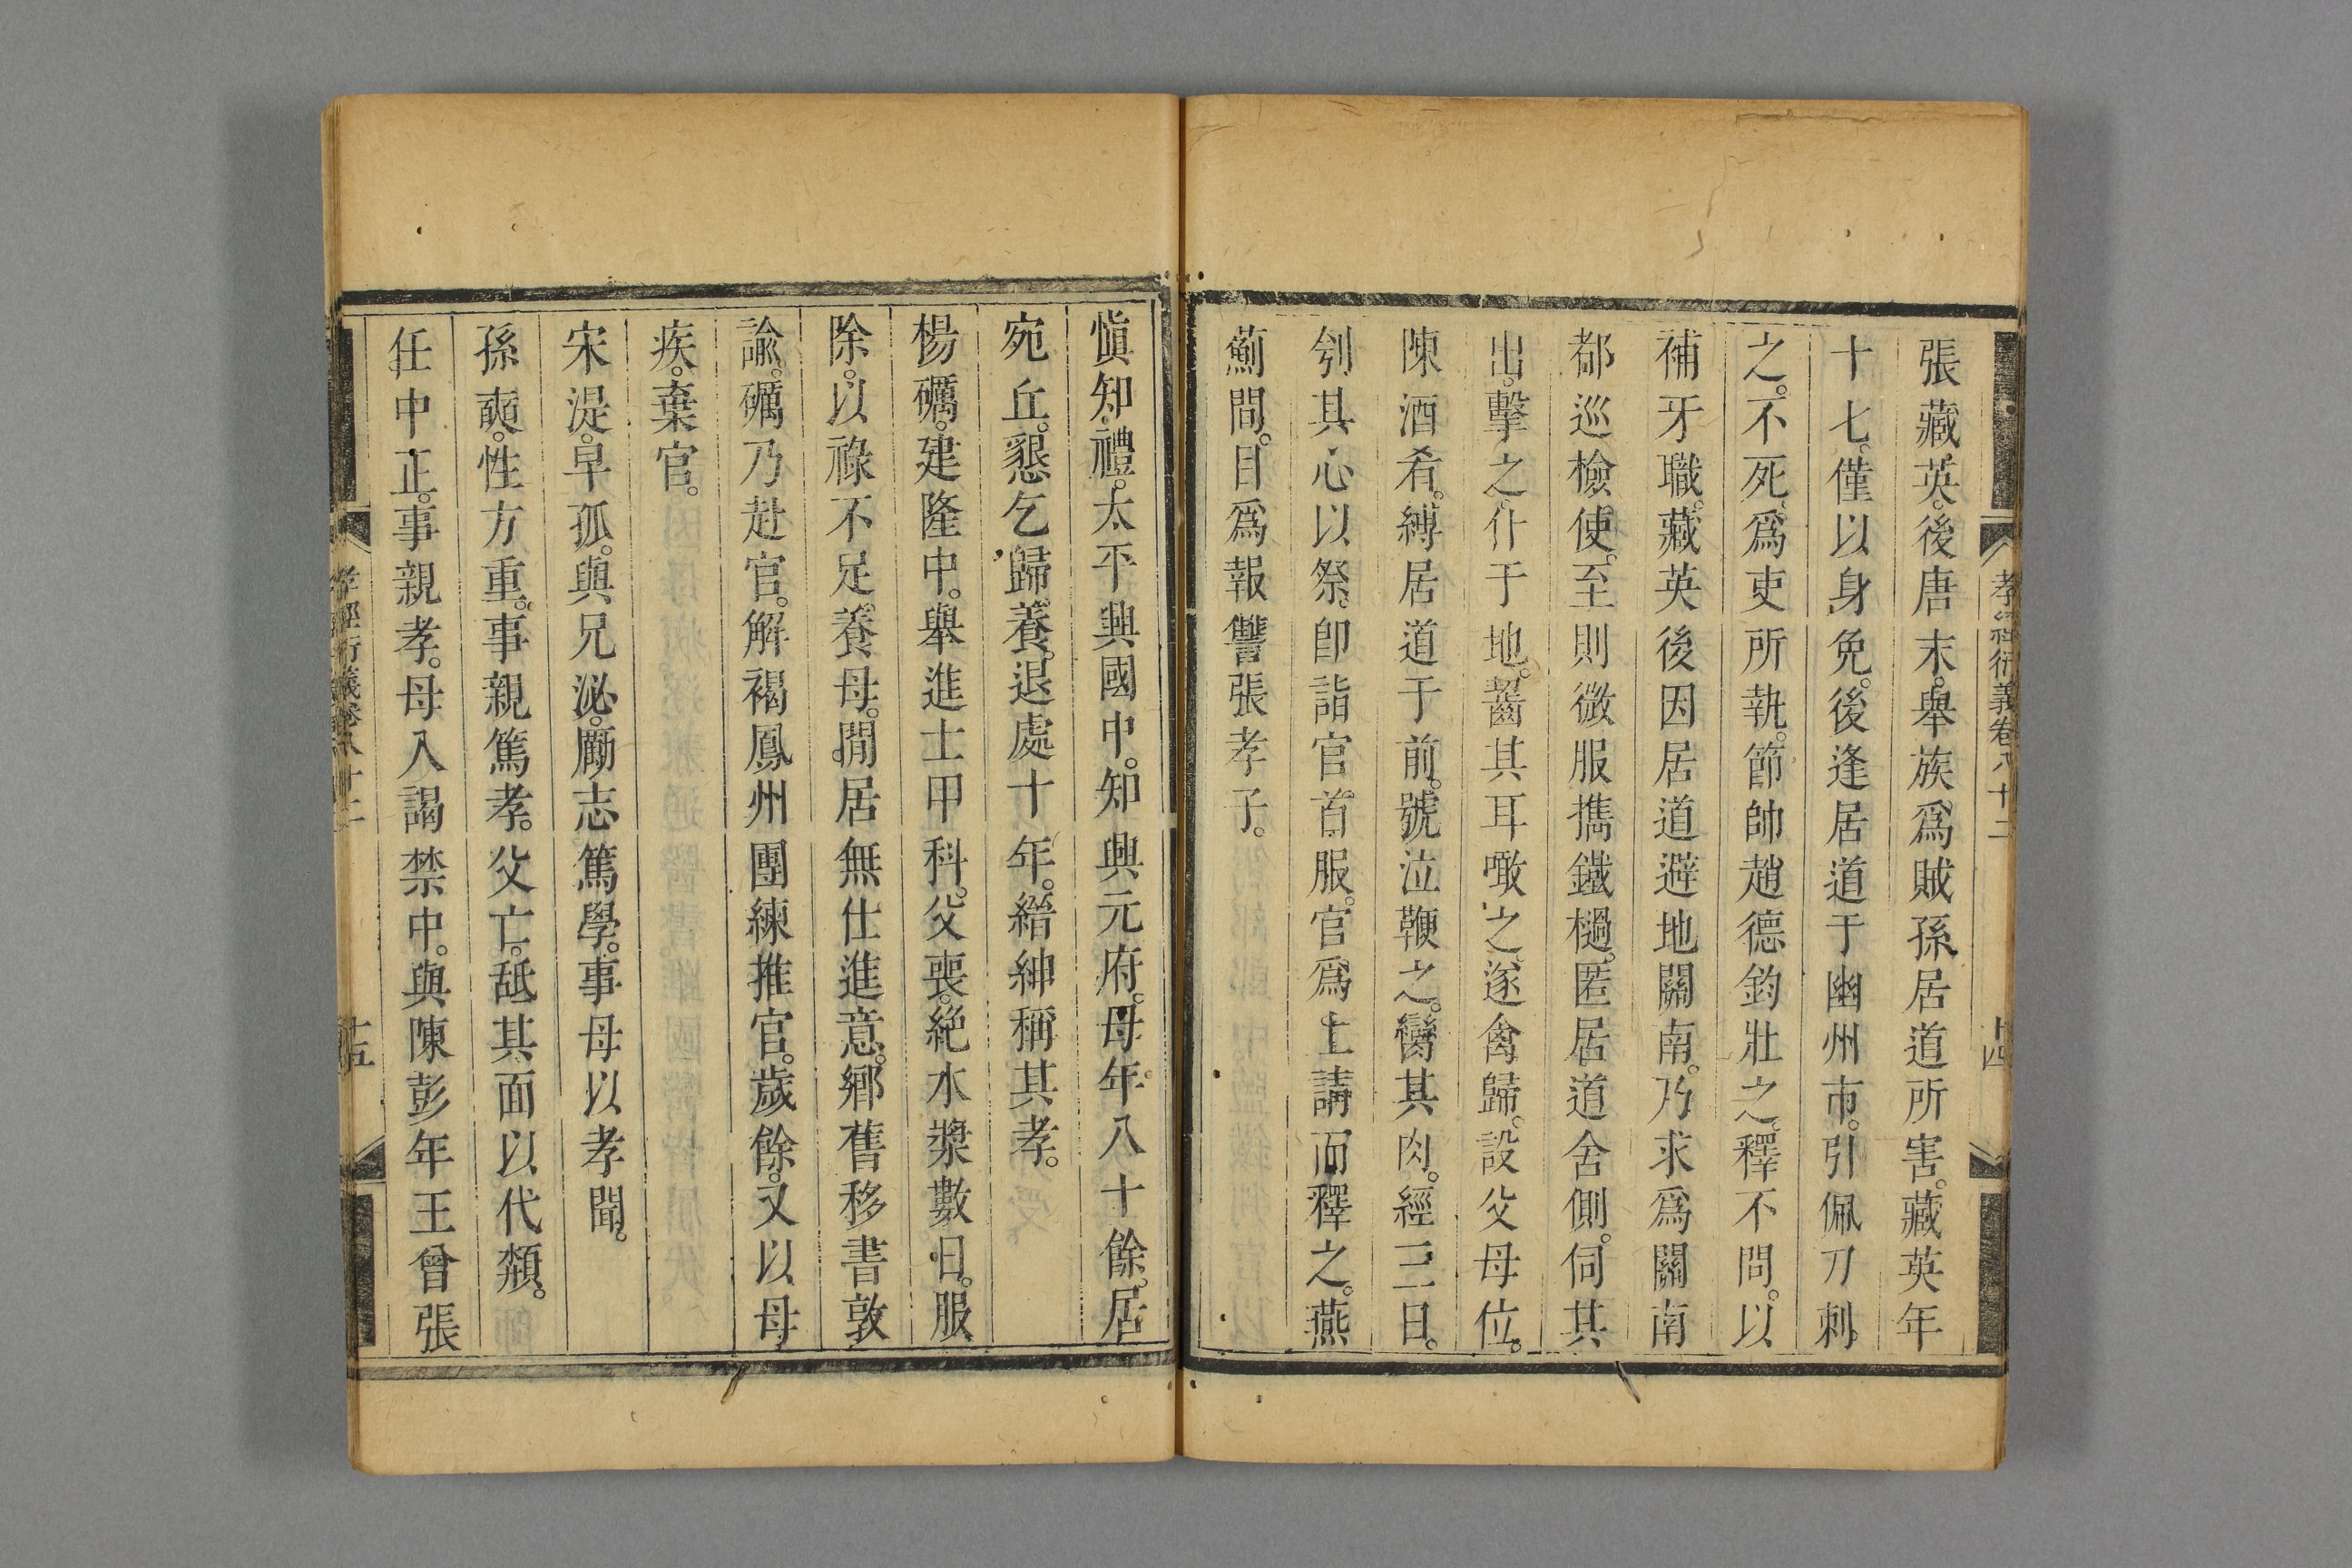 孝經衍義卷八十二
十四
張藏英。後唐末。舉族爲賊孫居道所害。藏英年
十七。僅以身免。後逢居道于幽州市。引佩刀刺
之。不死。爲吏所執。節帥趙德鈞壯之。釋不問。以
補牙職。藏英後因居道避地關南。乃求爲關南
都巡檢使。至則微服攜鐵檛。匿居道舍側。伺其
出。擊之。仆于地。齧其耳噉之。遂禽歸。設父母位。
陳酒肴。縛居道于前。號泣鞭之。臠其肉。經三日。
刳其心以祭。卽詣官首服。官爲上請而釋之。燕
薊間。目爲報讐張孝子。
愼知禮。太平興國中。知興元府。母年八十餘。居
宛丘。懇乞歸養。退處十年。縉紳稱其孝。
楊礪。建隆中。舉進士甲科。父喪。絶水漿數日。服
除。以祿不足養母。閒居無仕進意。鄉舊移書敦
諭。礪乃赴官。解褐鳳州團練推官。歲餘。又以母
疾。棄官。
宋湜。早孤。與兄泌。勵志篤學。事母以孝聞。
孫奭。性方重。事親篤孝。父亡。舐其面以代頮。
任中正。事親孝。母入謁禁中。與陳彭年王曾張
孝經衍義卷八十二
十五